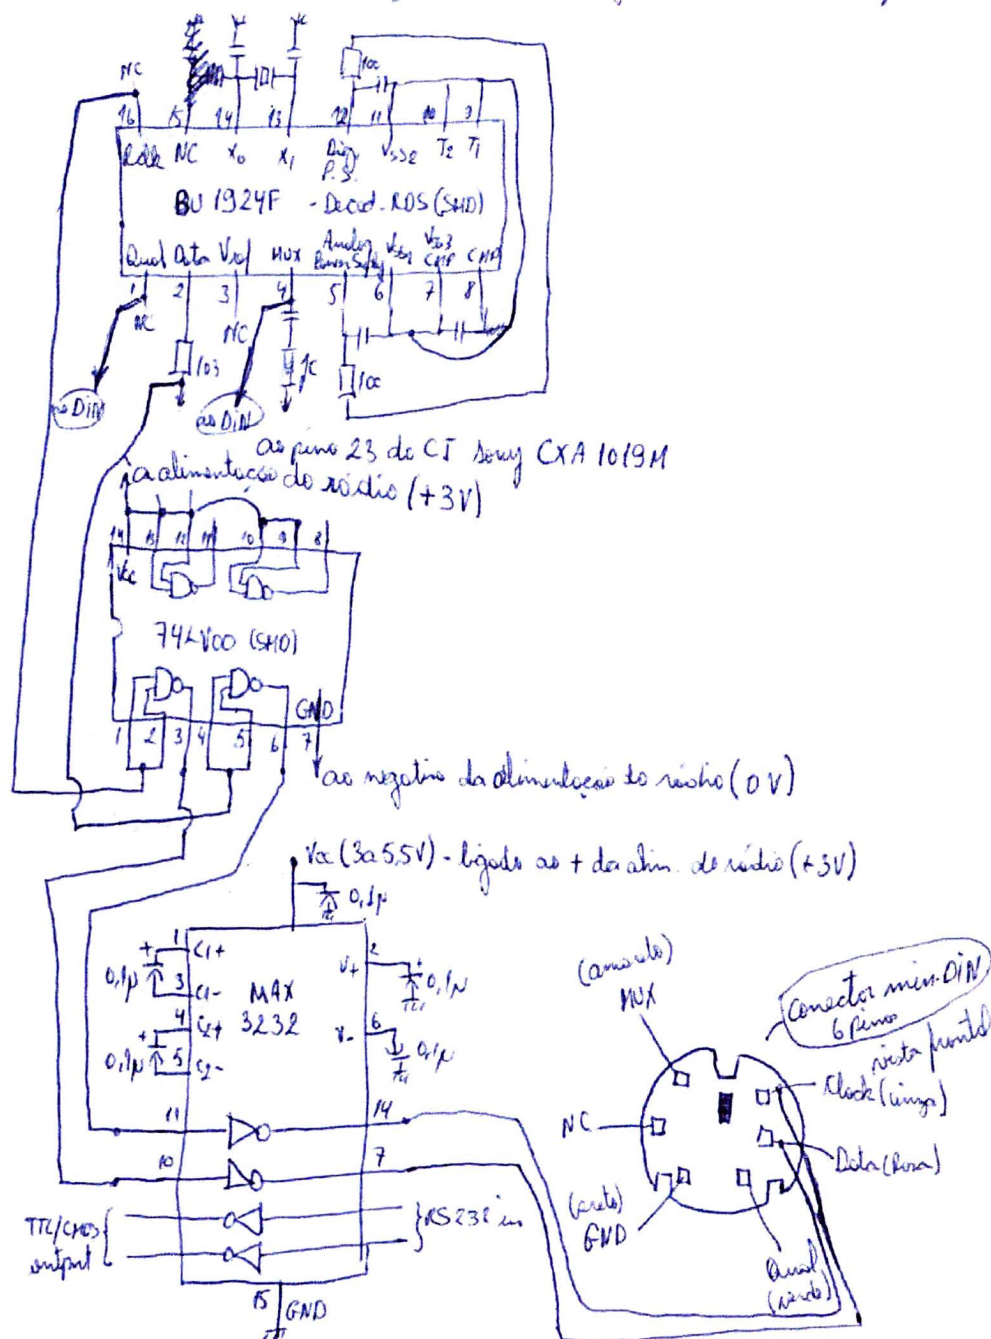 NC
100
16 15 14 13 12 11 10 9
Rclk NC X0 X1 Dig. P.S. VSS2 T2 T1
BU 1924F - Decod. RDS (SMD)
Qual Data Vref MUX Analog Power Supply VSS1 VSS3 CMP CMP
1 2 3 4 5 6 7 8
NC
NC
103
1c
100
ao DiN
ao DiN
ao pino 23 do CI Sony CXA 1019M
à alimentação do rádio (+3V)
14 13 12 11 10 9 8
Vcc
74LV00 (SMD)
GND
1 2 3 4 5 6 7
ao negativo da alimentação do rádio (0V)
Vcc (3 a 5,5V) - ligado ao + da alim. do rádio (+3V)
0,1µ
1 C1+
0,1µ
3 C1-
4 C2+
0,1µ
5 C2-
MAX
3232
2
V+
0,1µ
6
V-
0,1µ
11
14
10
7
TTL/CMOS
output
RS232 in
15
GND
conector mini-DiN
6 pinos
vista frontal
(amarelo)
MUX
Clock (cinza)
NC
Data (Rosa)
(preto)
GND
Qual
(verde)